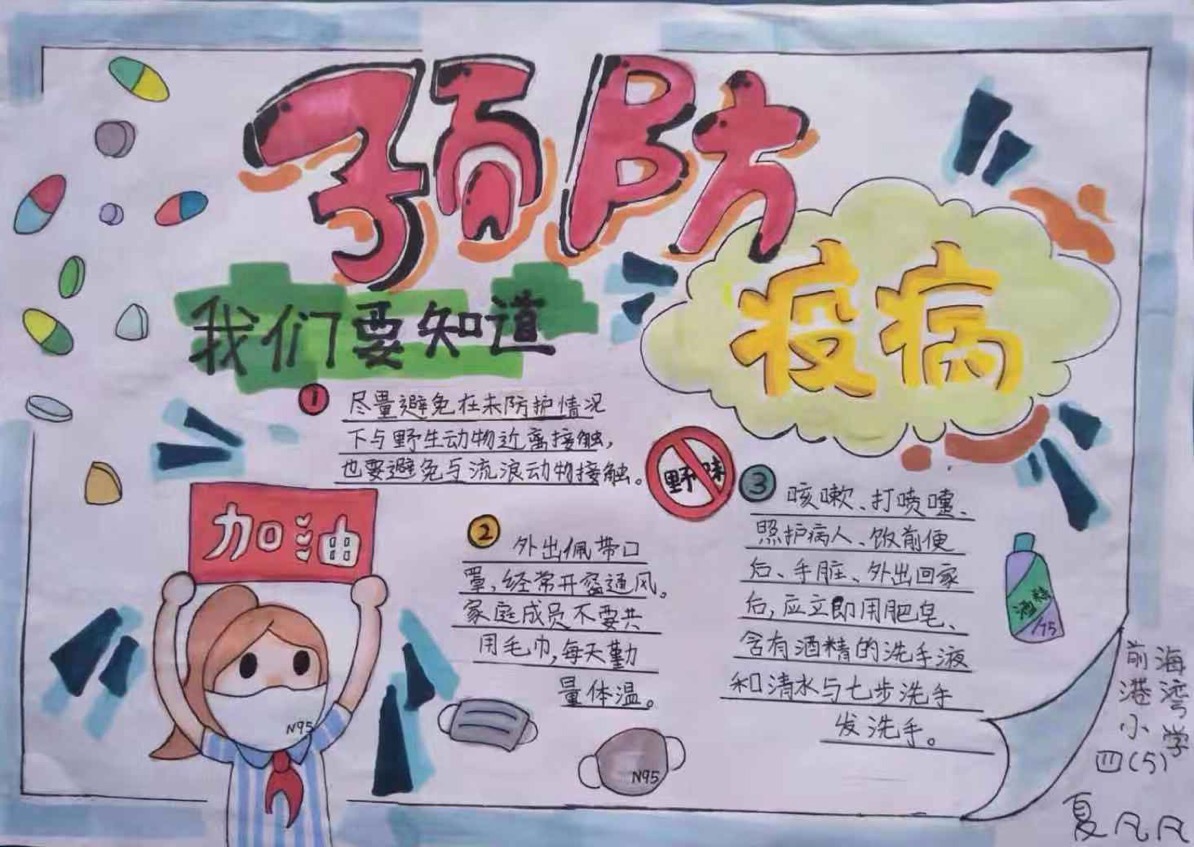 预防
疫病
我们要知道
1
尽量避免在未防护情况
下与野生动物近离接触,
也要避免与流浪动物接触。
野味
加油
2
外出佩带口
罩,经常开窗通风。
家庭成员不要共
用毛巾,每天勤
量体温。
3
咳嗽、打喷嚏、
照护病人、饭前便
后、手脏、外出回家
后,应立即用肥皂、
含有酒精的洗手液
和清水与七步洗手
发洗手。
酒精
/75
N95
N95
海湾
前港小学
四(5)
夏凡凡